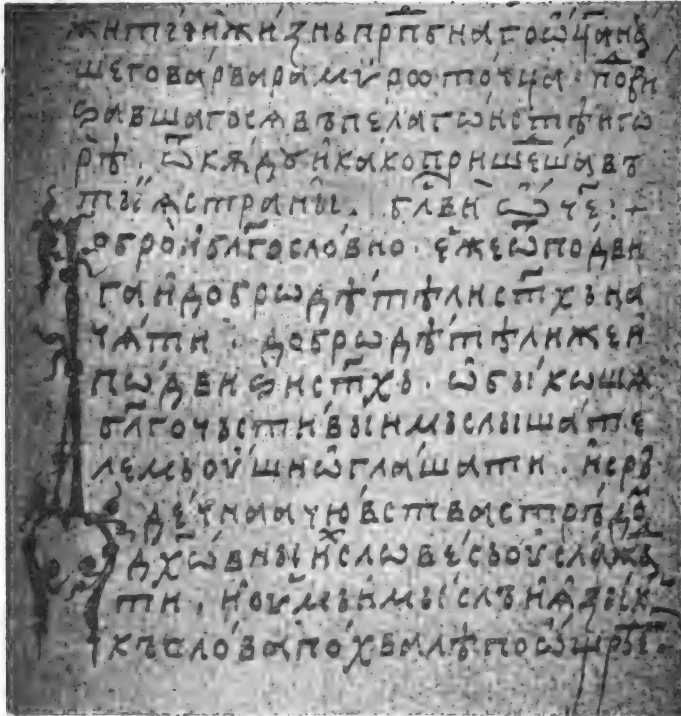 житїе и҆ жи́знь прпⷣбнаго ѡ҆ц҃а на
шего ва́рвара мѷроото́чца · по
ѳавшаго сѧ въ пела́гѡнстѣи го
рѣ · ѿкѫдꙋ и҆ ка́ко прише́ша въ
тыѧ страны. бл҃ви ѡ҆́че :+
обро и҆ блг҃осло́вно · е҆́же ѿ подви
га и҆ добродѣ́тѣли ст҃хъ на
чѧ́ти · добрѡдѣ́тѣли же и҆
пѡ́двиѳи ст҃хъ · ѡ҆бы́кѡшѧ
блг҃очьсти́выим слы́шате
лемь оу҆́ши ѡ҆глаша́ти · и҆ срⷣ
де́чнаа чю́вства
дх҃ѡ́вныи словесь оу҆сла́ж
ти · и҆ оу҆́мь и҆ мы́слъ и҆ ѧ҆зы́к
къ сло́ва по́хвалѣ